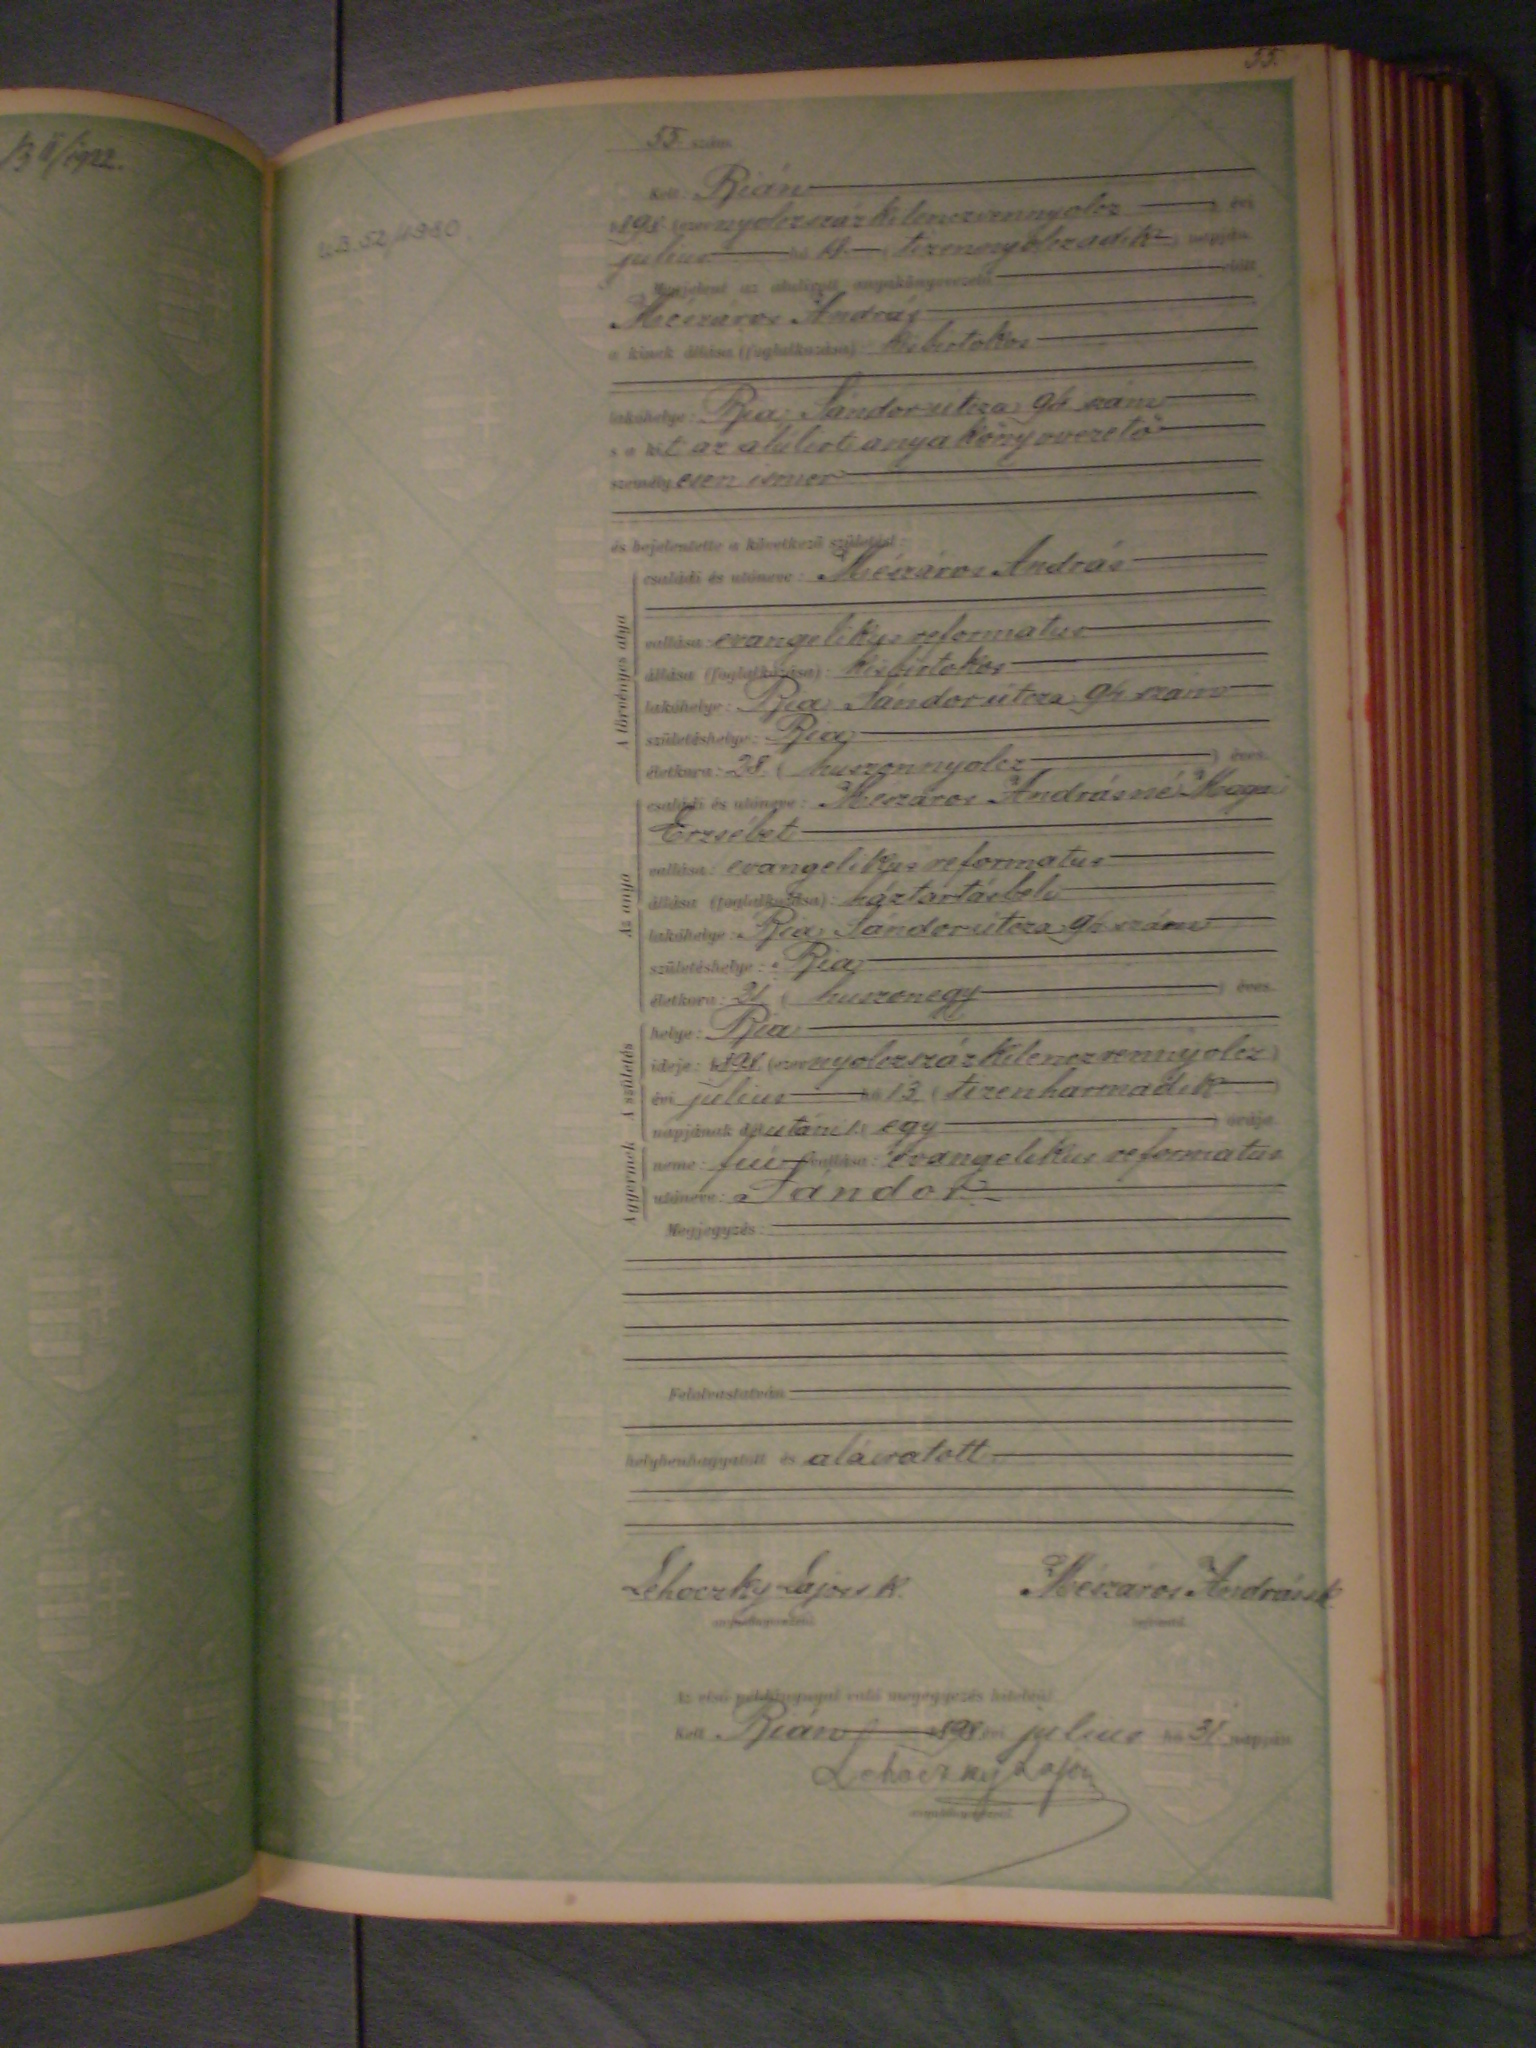 55.
55. szám
Kelt Bián
1898 (ezernyolczszázkilenczvennyolcz) évi
julius hó 18. (tizennyolczadik) napján.
Megjelent az alulirott anyakönyvvezető előtt
Mészáros András
a kinek állása (foglalkozása): kisbirtokos
lakóhelye: Bia, Sándor utcza 94 szám
s a kit az alulirt anyakönyvvezető
személyesen ismer
és bejelentette a következő születést:
A törvényes atya
családi és utóneve: Mészáros András
vallása: evangelikus reformatus
állása (foglalkozása): kisbirtokos
lakóhelye: Bia, Sándor utcza 94 szám
születéshelye: Bia
életkora: 28 (huszonnyolcz) éves.
Az anya
családi és utóneve: Mészáros Andrásné
Erzsébet
vallása: evangelikus reformatus
állása (foglalkozása): háztartásbeli
lakóhelye: Bia, Sándor utcza 94 szám
születéshelye: Bia
életkora: 21 (huszonegy) éves.
A születés
helye: Bia
ideje: 1898 (ezernyolczszázkilenczvennyolcz)
évi julius hó 13 (tizenharmadik)
napjának délutáni 1 (egy) órája.
A gyermek
neme: fiú vallása: evangelikus reformatus
utóneve: Sándor
Megjegyzés:
Felolvastatván
helybenhagyatott és aláiratott
Lehoczky Lajos k. Mészáros András k.
anyakönyvvezető. bejelentő.
Az első példánynyal való megegyezés hiteléül
Kelt Bián 1898 évi julius hó 31 napján
Lehoczky Lajos
anyakönyvvezető.